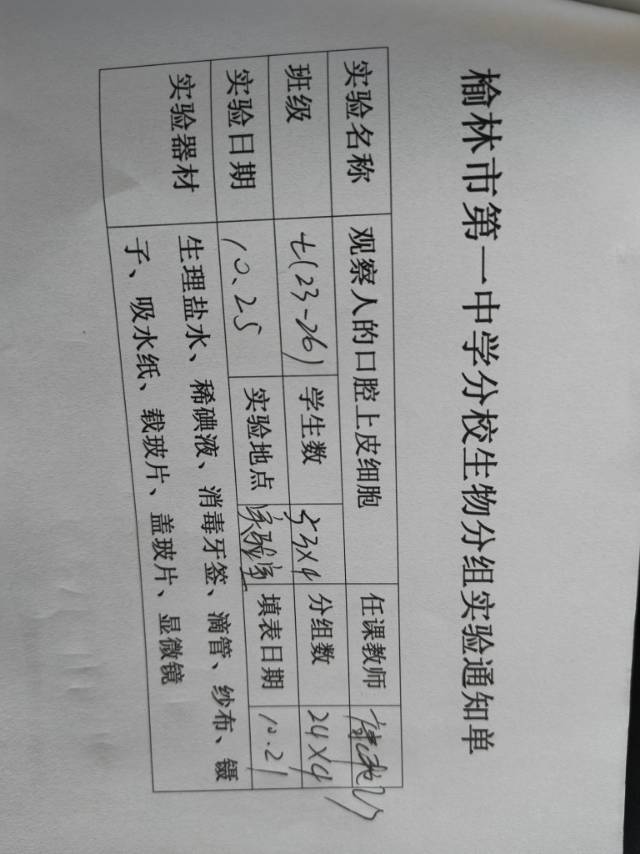 榆林市第一中学分校生物分组实验通知单
实验名称 观察人的口腔上皮细胞 任课教师
班级 七(23-26) 学生数 53×4 分组数 24×4
实验日期 10.25 实验地点 实验室 填表日期 10.21
实验器材 生理盐水、稀碘液、消毒牙签、滴管、纱布、镊
子、吸水纸、载玻片、盖玻片、显微镜